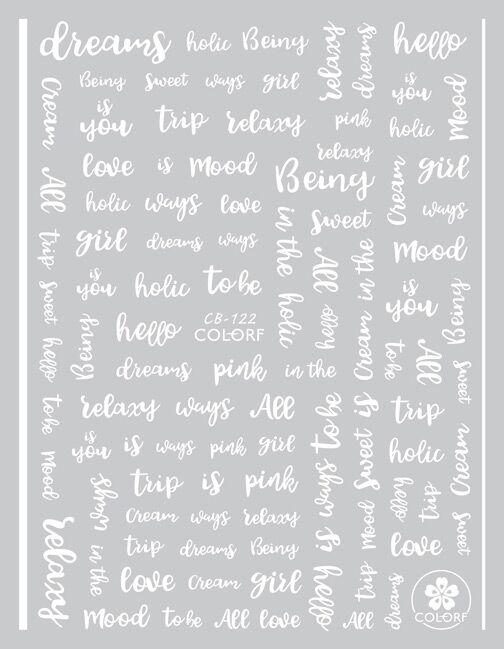 dreams holic Being
relaxy
dreams
hello
Being Sweet ways girl
is you
Mood
Cream
is you trip relaxy pink
holic
relaxy
love is Mood Being
Cream
girl
All
holic ways love
ways
in the holic
Sweet
girl dreams ways
All
Cream in the
Mood
trip
is you holic to be
is you
Being
sweet
hello
hello CB-122
COLORF
Being
hello
to be
All
dreams pink in the
Sweet
to be
relaxy ways All
is ways to be
Sweet is
trip
is you is ways pink girl
holic
Cream
Mood
trip is pink
ways
hello
trip
Cream ways relaxy
Mood
relaxy
in the
trip dreams Being
love
Sweet
love Cream girl
hello
trip
dreams
Mood to be All love All
COLORF